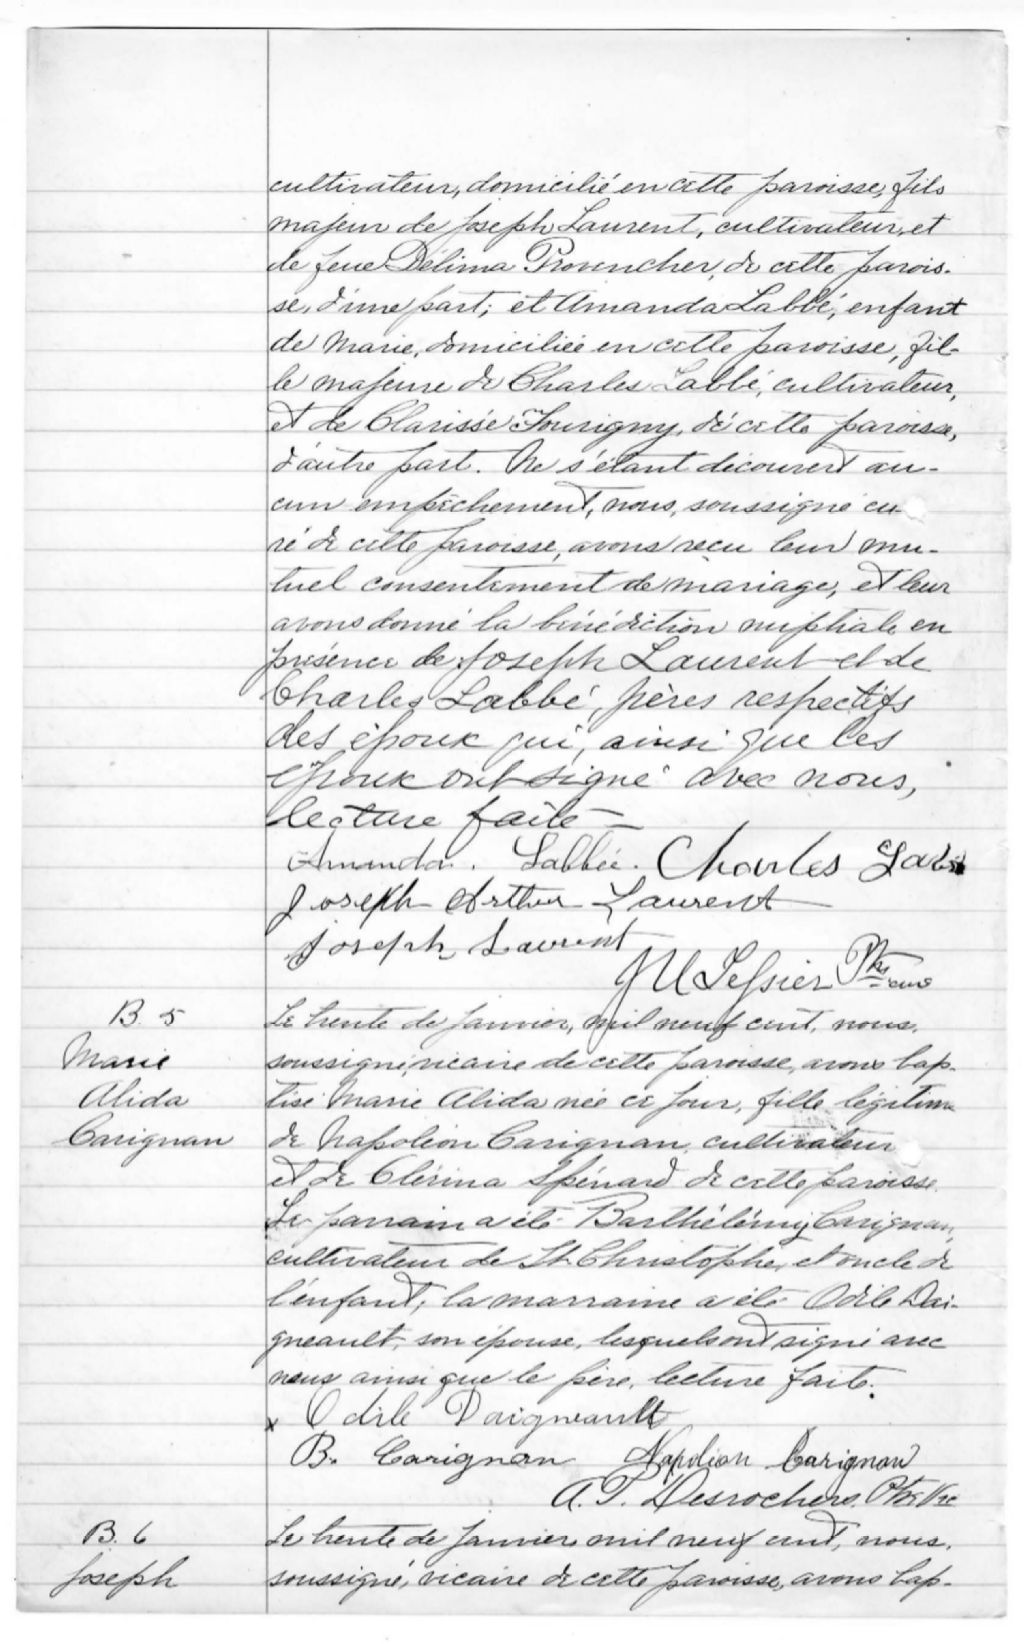 cultivateur, domicilié en cette paroisse, fils
majeur de Joseph Laurent, cultivateur, et
de feue Délima Provencher, de cette parois-
se, d'une part; et Amanda Labbé, enfant
de Marie, domiciliée en cette paroisse, fil-
le majeure de Charles Labbé, cultivateur,
et de Clarisse Fourigny, de cette paroisse,
d'autre part. Ne s'étant découvert au-
cun empêchement, nous, soussigné cu
ré de cette paroisse, avons reçu leur mu-
tuel consentement de mariage, et leur
avons donné la bénédiction nuptiale en
présence de Joseph Laurent et de
Charles Labbé, pères respectifs
des époux qui, ainsi que les
époux ont signé avec nous,
lecture faite —
Amanda. Labbée. Charles Labbé
Joseph Arthur Laurent
Joseph Laurent
J U Tessier Ptre curé
B. 5
Marie
Alida
Carignan
Le trente de janvier, mil neuf cent, nous,
soussigné, vicaire de cette paroisse, avons bap-
tisé Marie Alida née ce jour, fille légitime
de Napoléon Carignan, cultivateur
et de Clérina Spénard de cette paroisse.
Le parrain a été Barthélémy Carignan,
cultivateur de St. Christophe, et oncle de
l'enfant; la marraine a été Odile Dai-
gneault, son épouse, lesquels ont signé avec
nous ainsi que le père, lecture faite.
x Odile Daigneault
B. Carignan Napoléon Carignan
A. T. Desrochers, Ptre Vic
B. 6
Joseph
Le trente de janvier mil neuf cent, nous,
soussigné, vicaire de cette paroisse, avons bap-